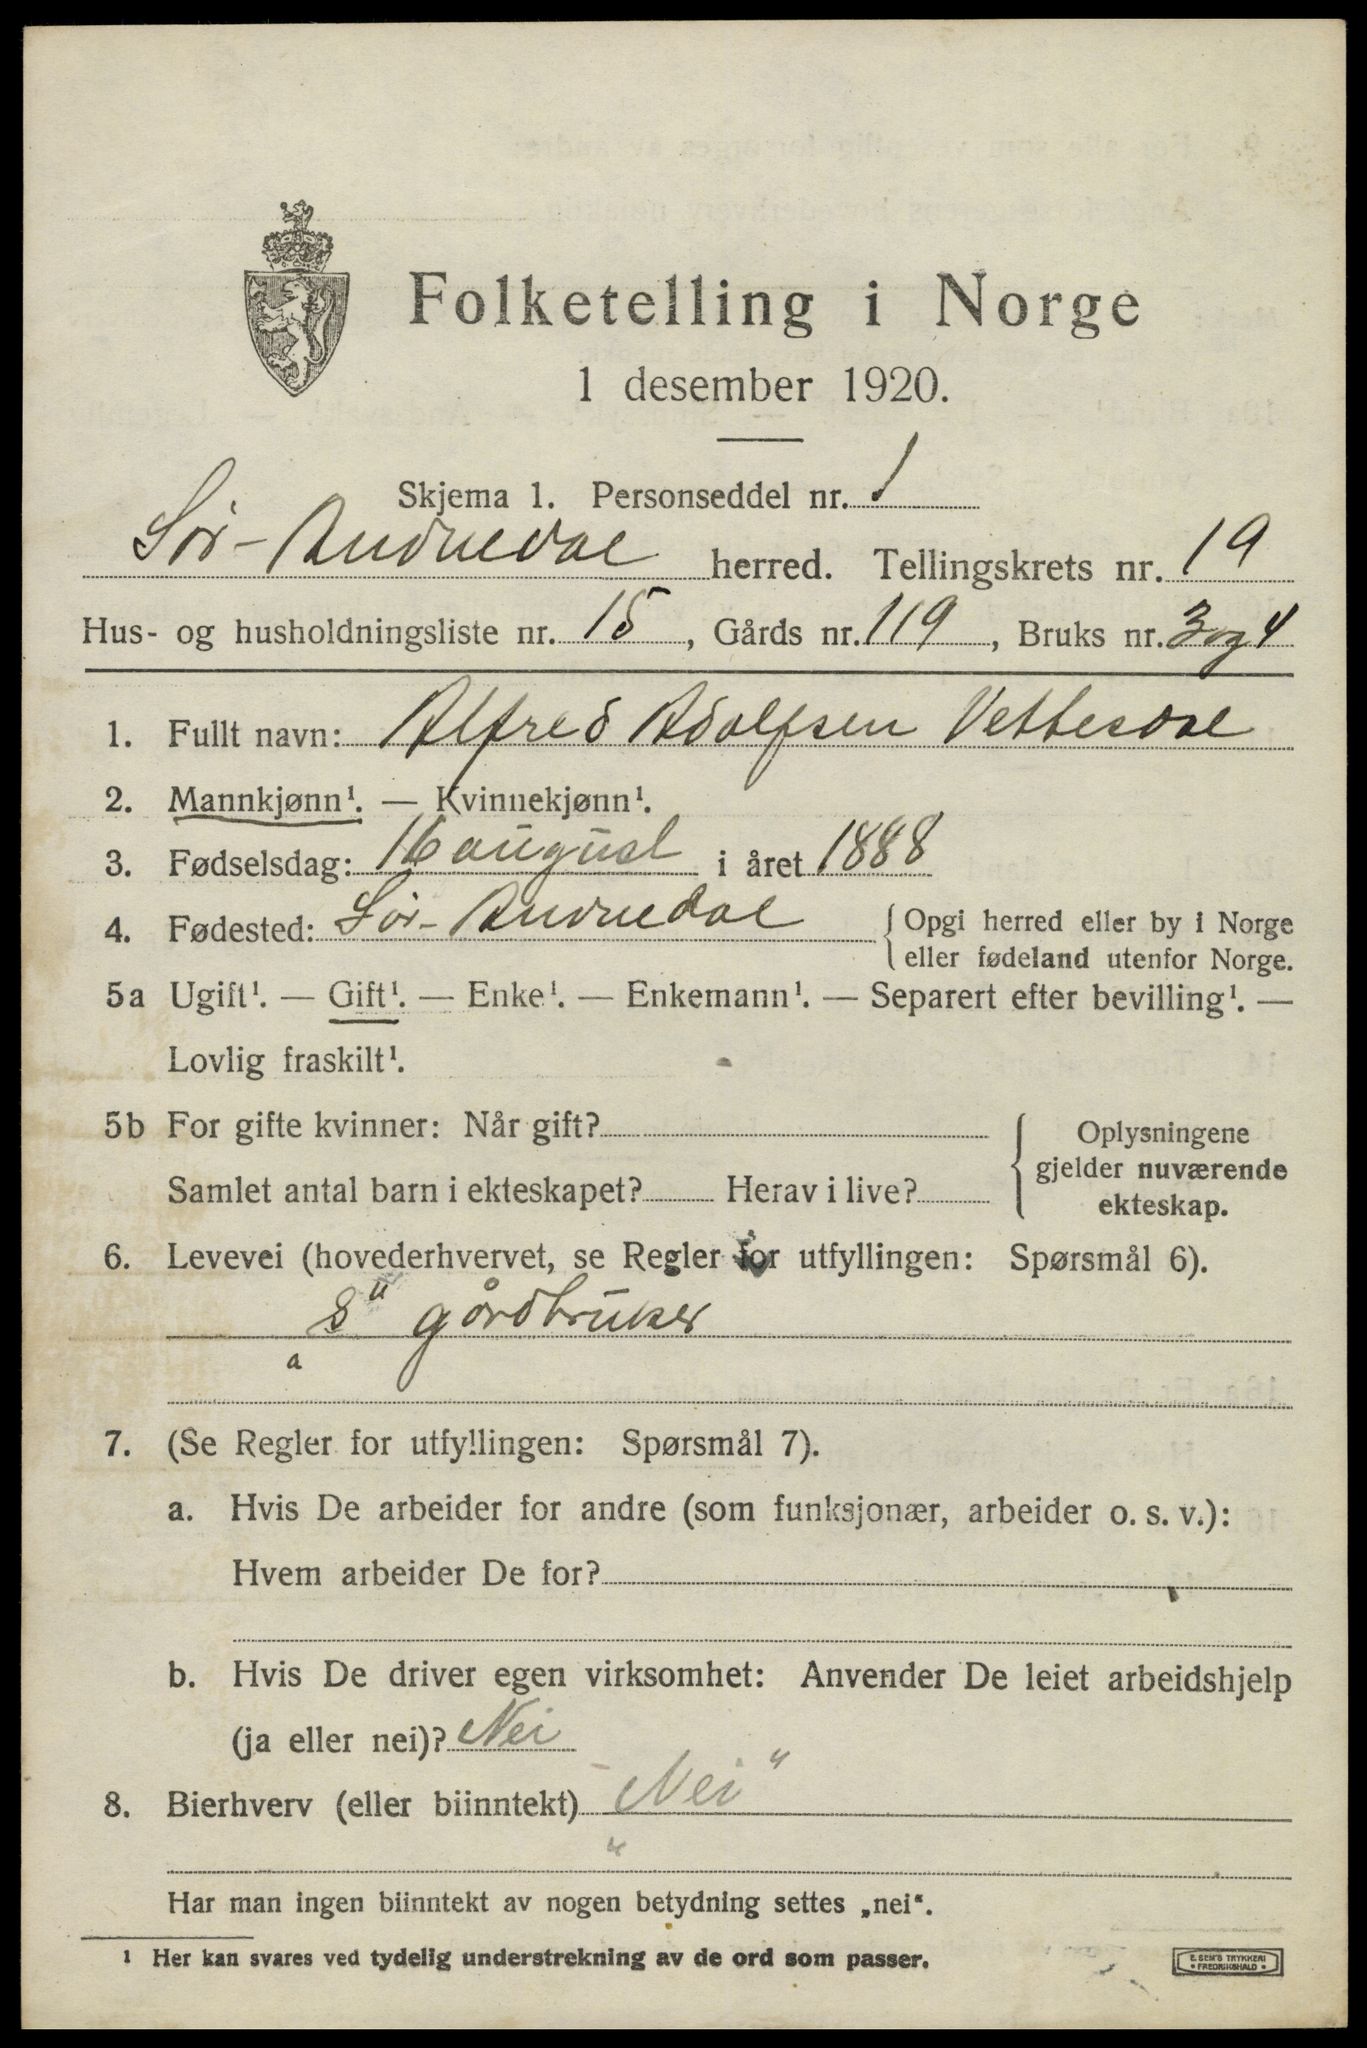 Folketelling i Norge
1 desember 1920.
Skjema 1. Personseddel nr. 1
Sør-Audnedal herred. Tellingskrets nr. 19
Hus- og husholdningsliste nr. 15, Gårds nr. 119, Bruks nr. 3 og 4
1. Fullt navn: Alfred Adolfsen Vettesdal
2. Mannkjønn¹. — Kvinnekjønn¹.
3. Fødselsdag: 16 august i året 1888
4. Fødested: Sør-Audnedal { Opgi herred eller by i Norge
eller fødeland utenfor Norge.
5a Ugift¹. — Gift¹. — Enke¹. — Enkemann¹. — Separert efter bevilling¹. —
Lovlig fraskilt¹.
5b For gifte kvinner: Når gift? { Oplysningene
gjelder nuværende
Samlet antal barn i ekteskapet? Herav i live?
ekteskap.
6. Levevei (hovederhvervet, se Regler for utfyllingen: Spørsmål 6).
S" gårdbruker
a
7. (Se Regler for utfyllingen: Spørsmål 7).
a. Hvis De arbeider for andre (som funksjonær, arbeider o. s. v.):
Hvem arbeider De for?
b. Hvis De driver egen virksomhet: Anvender De leiet arbeidshjelp
(ja eller nei)? Nei
8. Bierhverv (eller biinntekt) „Nei"
"
Har man ingen biinntekt av nogen betydning settes „nei“.
1 Her kan svares ved tydelig understrekning av de ord som passer.
E. SEM'S TRYKKERI
• FREDRIKSHALD •